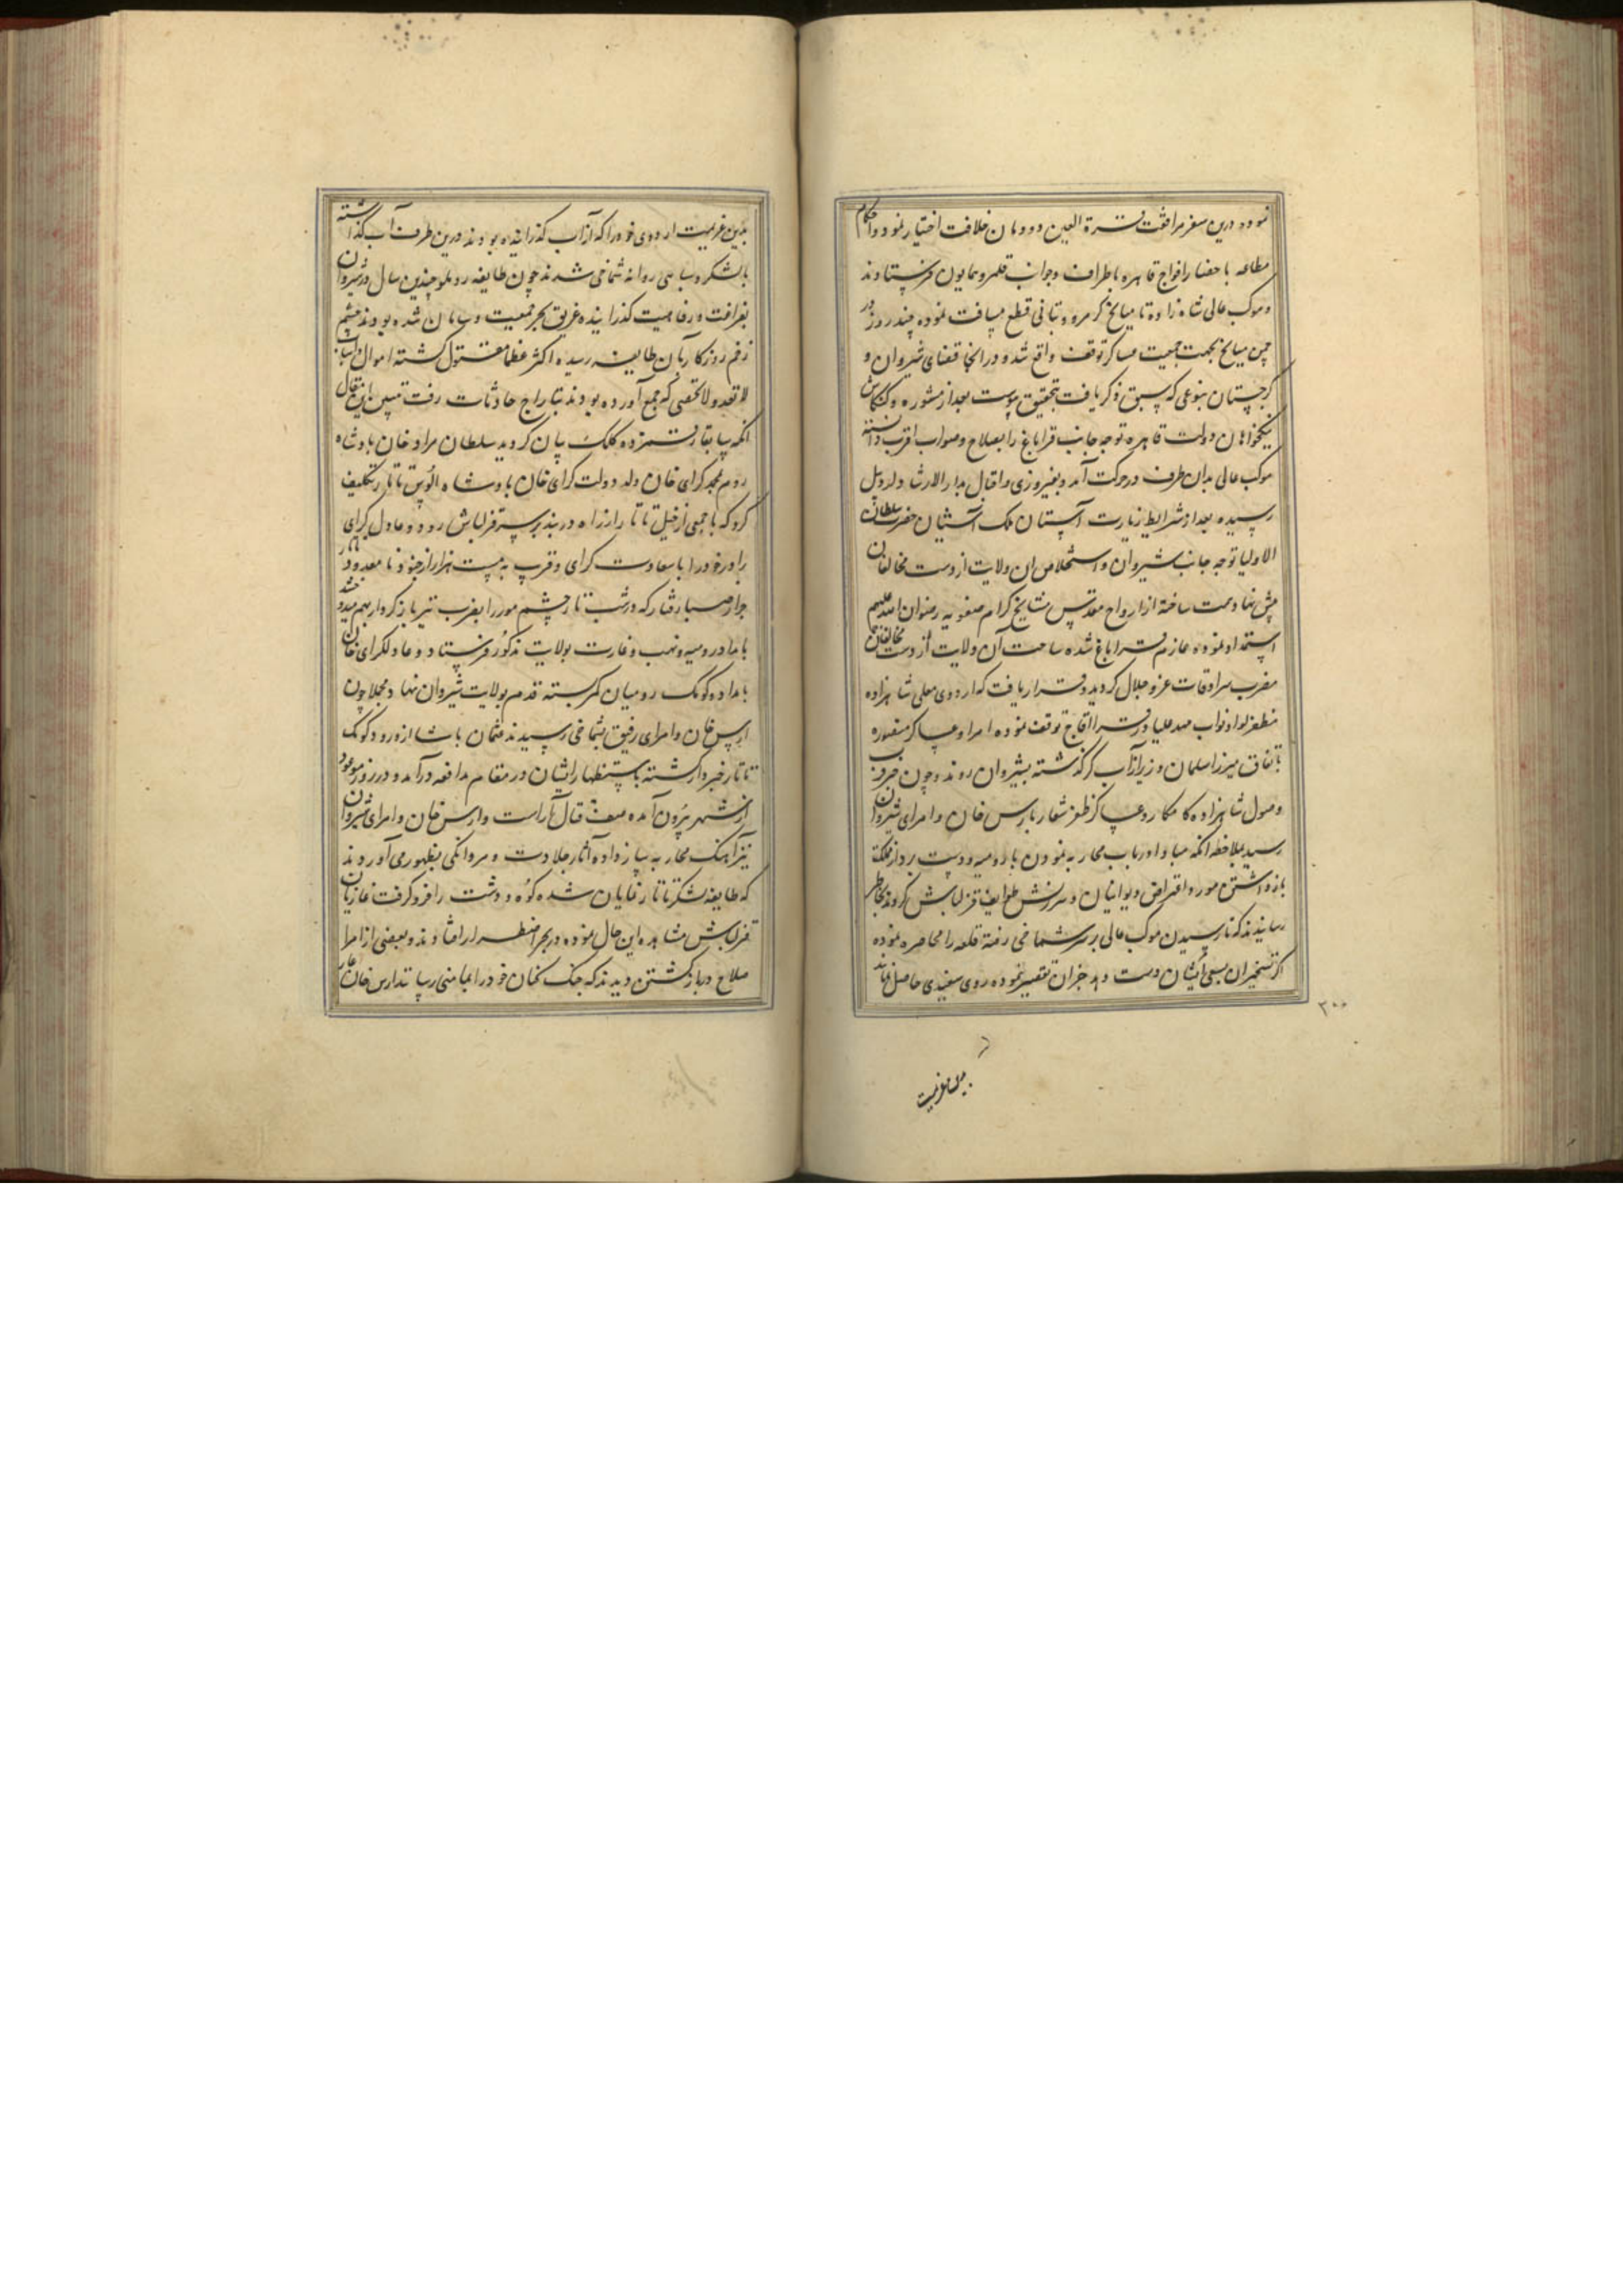 نموده درین سفر مرافقت قرة العین دودمان خلافت اختیار نمود و احکام
مطاعه باحضار افواج قاهره باطراف و جوانب قلمرو همایون فرستادند
و موکب عالی شاهزاده تا میانج کرمرود بتانی قطع مسافت نموده چند روز در
چمن میانج بجهت جمعیت عساکر توقف واقع شد و در آنجا قضایای شیروان و
کرجستان بنوعی که سبق ذکر یافت بتحقیق پیوست بعد از مشوره و کنکاش
نیکخواهان دولت قاهره توجه جانب قراباغ را بصلاح و صواب اقرب دانسته
موکب عالی بدان طرف در حرکت آمد و بفیروزی و اقبال بدار الارشاد اردبیل
رسیده بعد از شرایط زیارت آستان ملک آشیان حضرت سلطان
الاولیا توجه جانب شیروان و استخلاص ان ولایت از دست مخالفان
پیش نهاد همت ساخته از ارواح مقدس مشایخ کرام صفویه رضوان الله علیهم
استمداد نموده عازم قراباغ شده ساحت آن ولایت از دست مخالفان
مضرب سرادقات عز و جلال کردید و قرار یافت که اردوی معلی شاهزاده
مظفر لوا و نواب مهد علیا در قراآقاج توقف نموده امرا و عساکر منصوره
باتفاق میرزا سلمان وزیر از آب کر گذشته بشیروان روند و چون خبر قرب
وصول شاهزاده کامکار و عساکر ظفر شعار بارس خان و امرای شیروان
رسید بملاحظه آنکه مبادا در باب محاربه نمودن با رومیه و دست بردار مملکة
باز داشتن مورد اعتراض دیوانیان و سرزنش طوایف قزلباش کردند بخاطر
رسانیدند که تا رسیدن موکب عالی بر سر شماخی رفته قلعه را محاصره نموده
اکر تسخیر ان بسعی ایشان دست دهد جبران تقصیر نموده روی سفیدی حاصل نمایند
۳۰۰
بدین عزیمت
بدین عزیمت اردوی خود را که از آب کذرانیده بودند درین طرف آب کذاشته
بالشکر و سپاهی روانه شماخی شدند چون طایفه روملو چندین سال در شیروان
بفراغت و رفاهیت کذرانیده غریق بحر جمعیت و سامان شده بودند چشم
زخم روزکار بآن طایفه رسیده اکثر عظما مقتول کشته اموال و اسباب
لاتعد ولاتحصی که جمع آورده بودند بتاراج حادثات رفت تبیین این مقال
آنکه سابقا رقمزده کلک بیان کردید سلطان مراد خان پادشاه
روم محمد کرای خان ولد دولت کرای خان پادشاه الوس تاتار تکلیف
کرد که با جمعی از خیل تاتار از راه دربند بر سر قزلباش رود و عادل کرای
برادر خود را با سعادت کرای و قرب به بیست هزار از جنود نامعدود تاتار
جرار صبا رفتار که در شب تار چشم مور را بضرب تیر باز کردار بهم میدوختند
بامداد رومیه و نهب و غارت بولایت مذکور فرستاد و عادلکرای خان
بامداد و کومک رومیان کمر بسته قدم بولایت شیروان نهاد و مجملا چون
ارس خان و امرای رفیق بشماخی رسیدند عثمان پاشا از ورود کومک
تاتار خبردار کشته باستظهار ایشان در مقام مدافعه درآمد و در روز موعود
از شهر بیرون آمده صف قتال آراست و ارس خان و امرای شیروان
نیز آهنک محاربه ساز داده آثار جلادت و مردانکی بظهور می آوردند
که طایفه لشکر تاتار نمایان شده کوه و دشت را فرو کرفت غازیان
قزلباش مشاهده این حال نموده در بحر اضطرار افتادند و بعضی از امرا
صلاح در باز کشتن دیدند که جنک کنان خود را بمامنی رسانند ارس خان